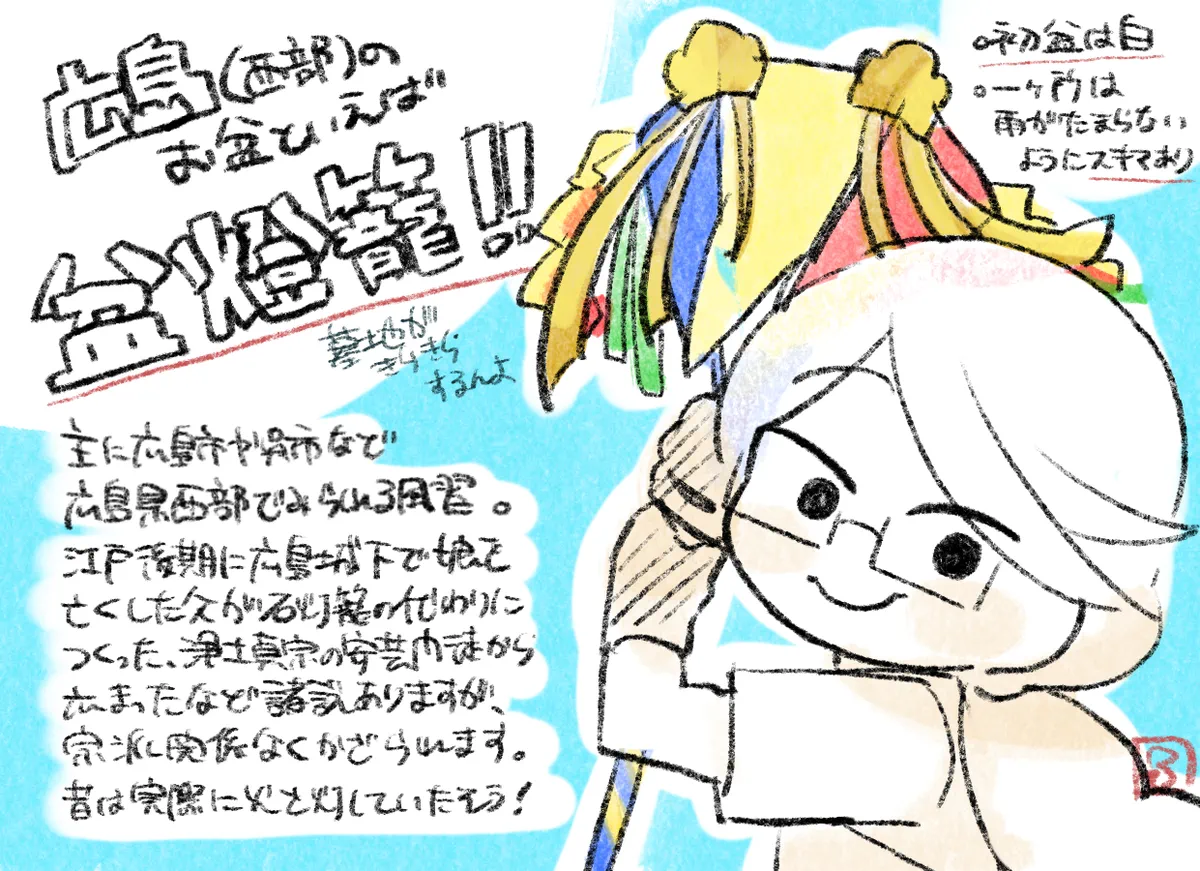 広島(西部)の
お盆といえば
盆燈籠!!
墓地が
きらきら
するんよ
。初盆は白
。一ヶ所は
雨がたまらない
ようにスキマあり
主に広島市や呉市などで
広島県西部でみられる風習。
江戸後期に広島城下で娘を
亡くした父が石灯籠の代わりに
つくった、浄土真宗の安芸門徒から
広まったなど諸説ありますが、
宗派に関係なくかざられます。
昔は実際に火を灯していたそう!